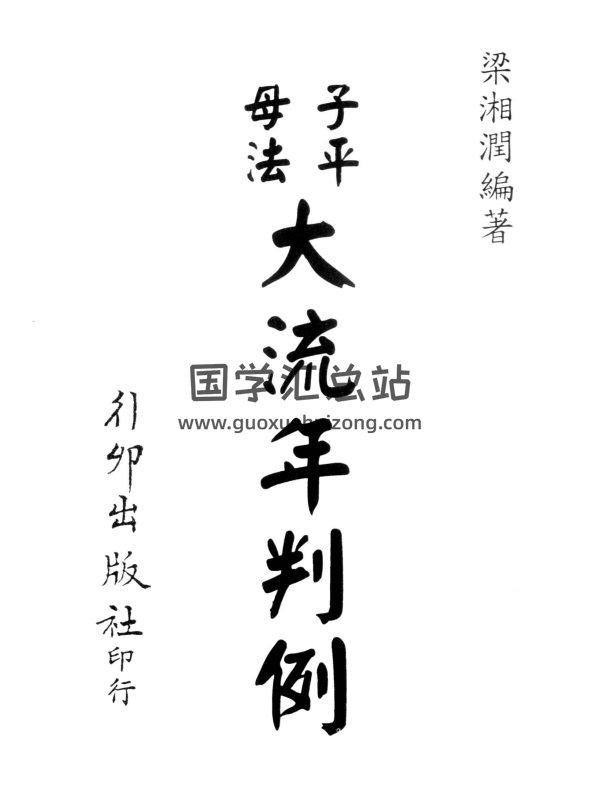 梁湘潤編著
子平
母法
大流年判例
国学汇总站
www.guoxuehuizong.com
行卯出版社印行